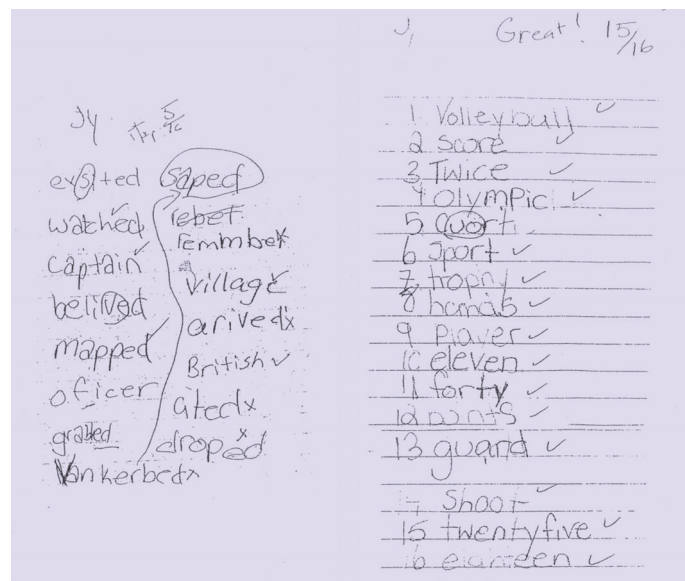 Jy 5/16
exsited
watched
captain
belived
mapped
oficer
grabed
Vankerbed
saped
rebet
remmber
village
arived
British
ated
droped
J Great! 15/16
1 Volleyball
2 score
3 Twice
4 OlymPic
5 quort
6 Sport
7 trophy
8
9 Player
10 eleven
11 forty
12 points
13 guard
Shoot
15 twentyfive
16 eighteen